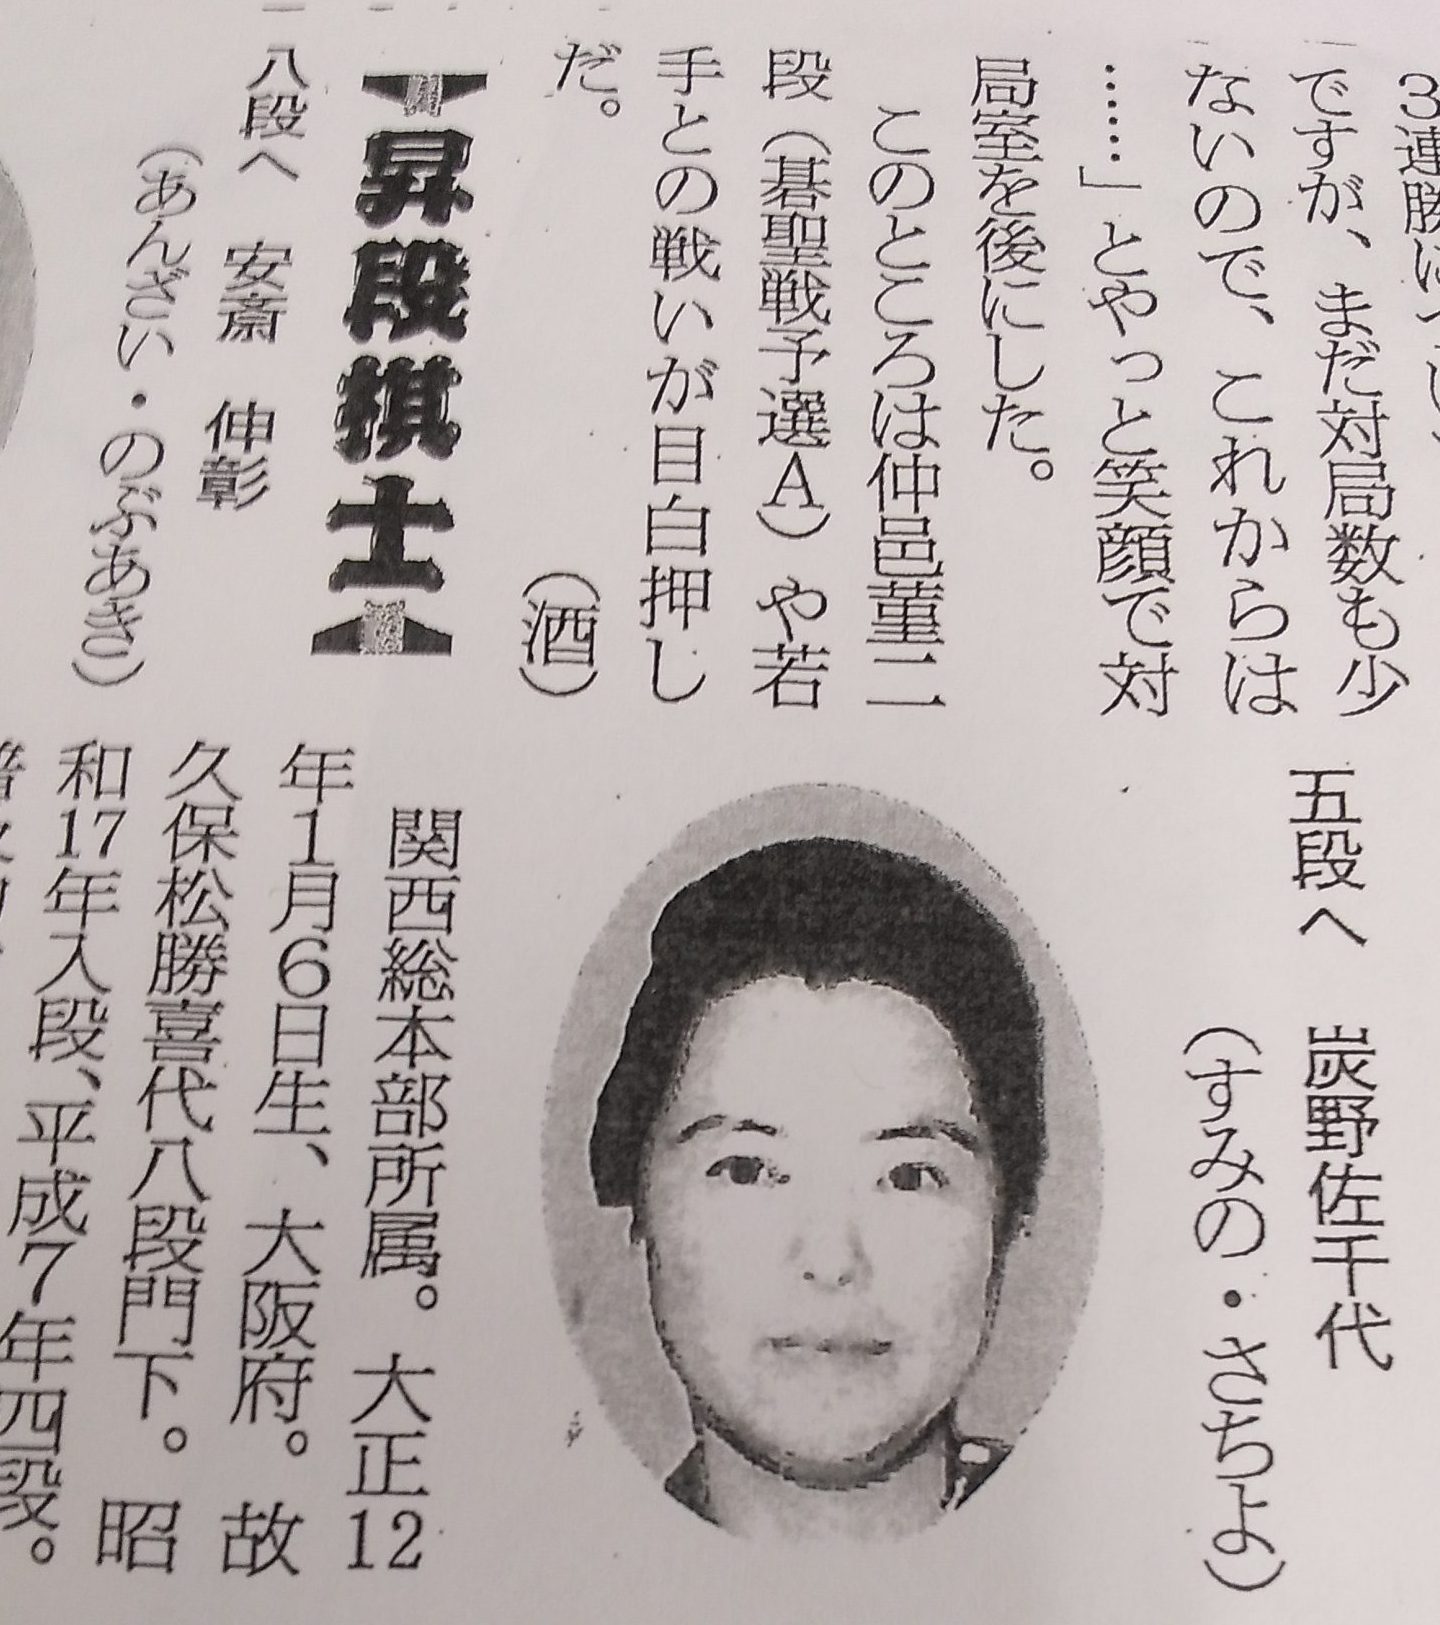 3連勝に
ですが、まだ対局数も少
ないので、これからは
……」とやっと笑顔で対
局室を後にした。
このところは仲邑菫二
段（碁聖戦予選A）や若
手との戦いが目白押し
だ。
（酒）
昇段棋士
八段へ　安斎　伸彰
（あんざい・のぶあき）
五段へ　炭野佐千代
（すみの・さちよ）
関西総本部所属。大正12
年1月6日生、大阪府。故
久保松勝喜代八段門下。昭
和17年入段、平成7年四段。